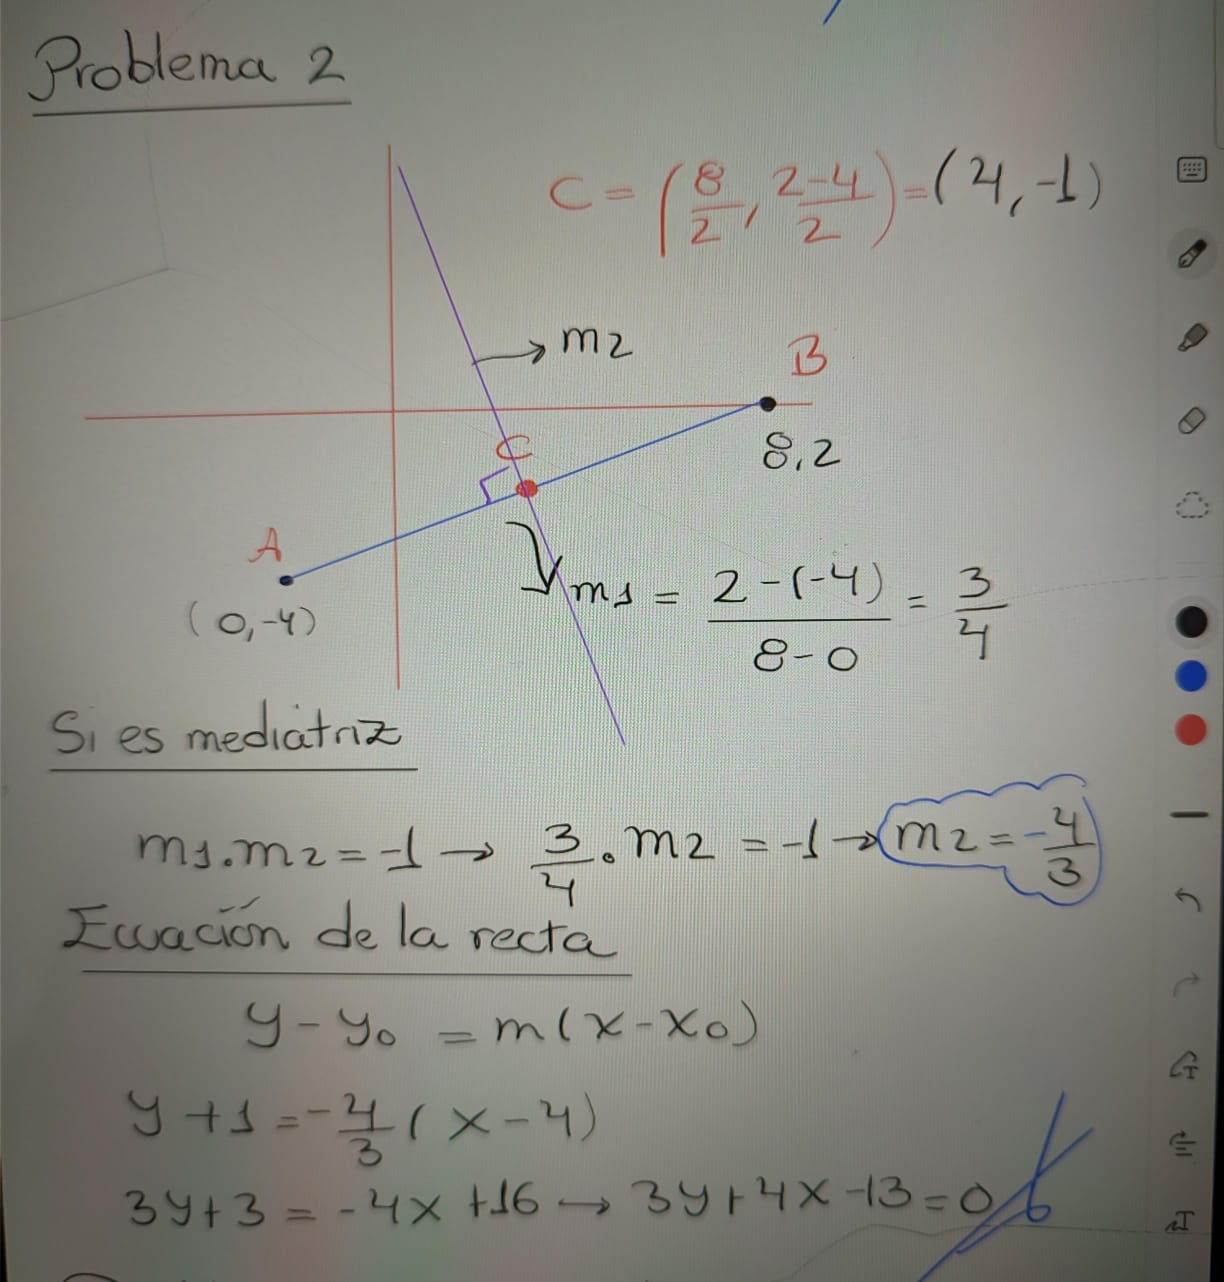 Problema 2
C = (8/2, 2-4/2) = (4, -1)
m2
B
8,2
C
A
(0,-4)
m1 = 2-(-4)/8-0 = 3/4
Si es mediatriz
m1.m2 = -1 → 3/4 . m2 = -1 → m2 = -4/3
Ecuación de la recta
y - y0 = m(x - x0)
y + 1 = -4/3 (x - 4)
3y + 3 = -4x + 16 → 3y + 4x - 13 = 0